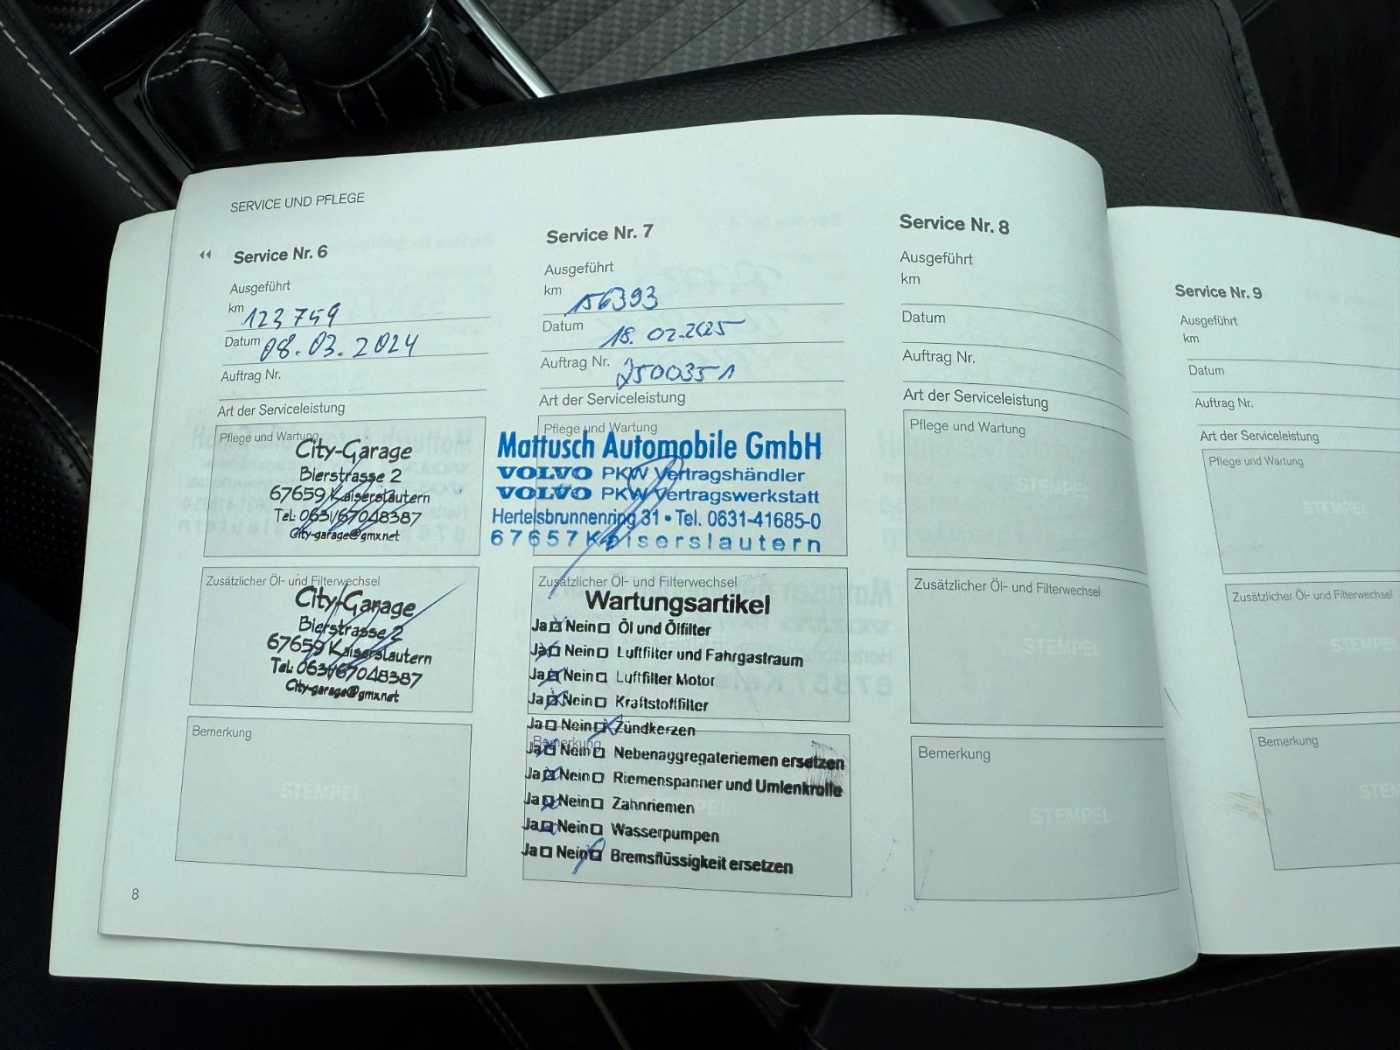 SERVICE UND PFLEGE
Service Nr. 6
Ausgeführt
km 123759
Datum 08.03.2024
Auftrag Nr.
Art der Serviceleistung
Pflege und Wartung
City-Garage
Bierstrasse 2
67659 Kaiserslautern
Tel: 0631/67048387
City-garage@gmx.net
Zusätzlicher Öl- und Filterwechsel
City-Garage
Bierstrasse 2
67659 Kaiserslautern
Tel: 0631/67048387
City-garage@gmx.net
Bemerkung
STEMPEL
8
Service Nr. 7
Ausgeführt
km 156393
Datum 18.02.2025
Auftrag Nr. 2500351
Art der Serviceleistung
Pflege und Wartung
Mattusch Automobile GmbH
VOLVO PKW Vertragshändler
VOLVO PKW Vertragswerkstatt
Hertelsbrunnenring 31 • Tel. 0631-41685-0
67657 Kaiserslautern
Zusätzlicher Öl- und Filterwechsel
Wartungsartikel
Ja Nein Öl und Ölfilter
Ja Nein Luftfilter und Fahrgastraum
Ja Nein Luftfilter Motor
Ja Nein Kraftstoffilter
Ja Nein Zündkerzen
Bemerkung
Ja Nein Nebenaggregateriemen ersetzen
Ja Nein Riemenspanner und Umlenkrolle
Ja Nein Zahnriemen
STEMPEL
Ja Nein Wasserpumpen
Ja Nein Bremsflüssigkeit ersetzen
Service Nr. 8
Ausgeführt
km
Datum
Auftrag Nr.
Art der Serviceleistung
Pflege und Wartung
STEMPEL
Zusätzlicher Öl- und Filterwechsel
STEMPEL
Bemerkung
STEMPEL
Service Nr. 9
Ausgeführt
km
Datum
Auftrag Nr.
Art der Serviceleistung
Pflege und Wartung
STEMPEL
Zusätzlicher Öl- und Filterwechsel
STEMPEL
Bemerkung